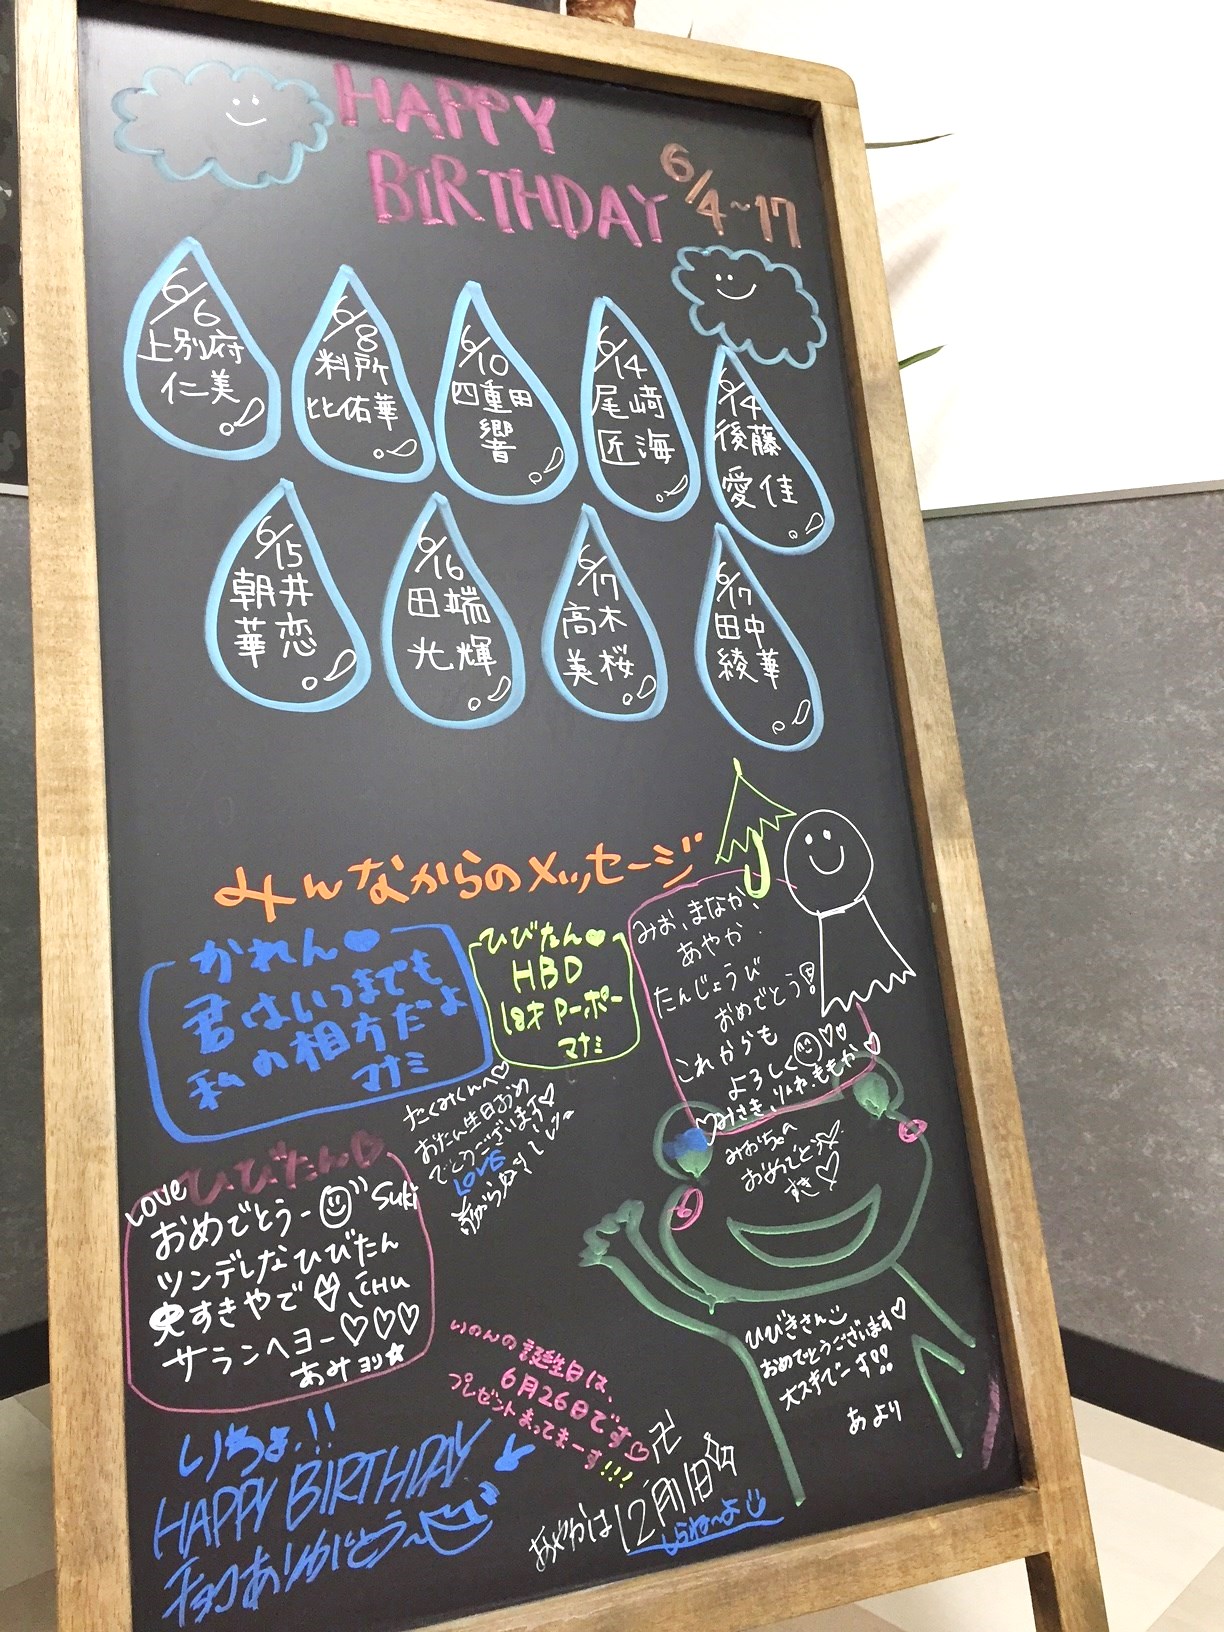 HAPPY
BIRTHDAY
6/4~17
6/6
上別府
仁美
6/8
料所
比佑華
6/10
四重田
響
6/14
尾崎
匠海
6/14
後藤
愛佳
6/15
朝井
華恋
6/16
田端
光輝
6/17
高木
美桜
6/17
田中
綾華
みんなからのメッセージ
かれん♥
君はいつまでも
私の相方だよ
マナミ
ひびたん♥
HBD
18才 Pーポー
マナミ
みお、まなか、
あやか
たんじょうび
おめでとう!
これからも
よろしく♡♡
♡みさき、りんね ももか♡
たくみくんへ♡
おたん生日おめ
でとうございます♡
LOVE
みおちゃんへ
おめでとう
すき♡
ひびたん♡
LOVE
おめでとうー Suki
ツンデレなひびたん
すきやで CHU
サランヘヨー♡♡♡
あみヨリ☆
ひびきさん
おめでとうございます♡
大スキでーす!!
あ より
いのんの誕生日は、
6月26日です♡
プレゼントまってまーす!!!
りちょ!!
HAPPY BIRTHDAY
チョコありがとう~
卍
あやかは12月1日
しらね~よ